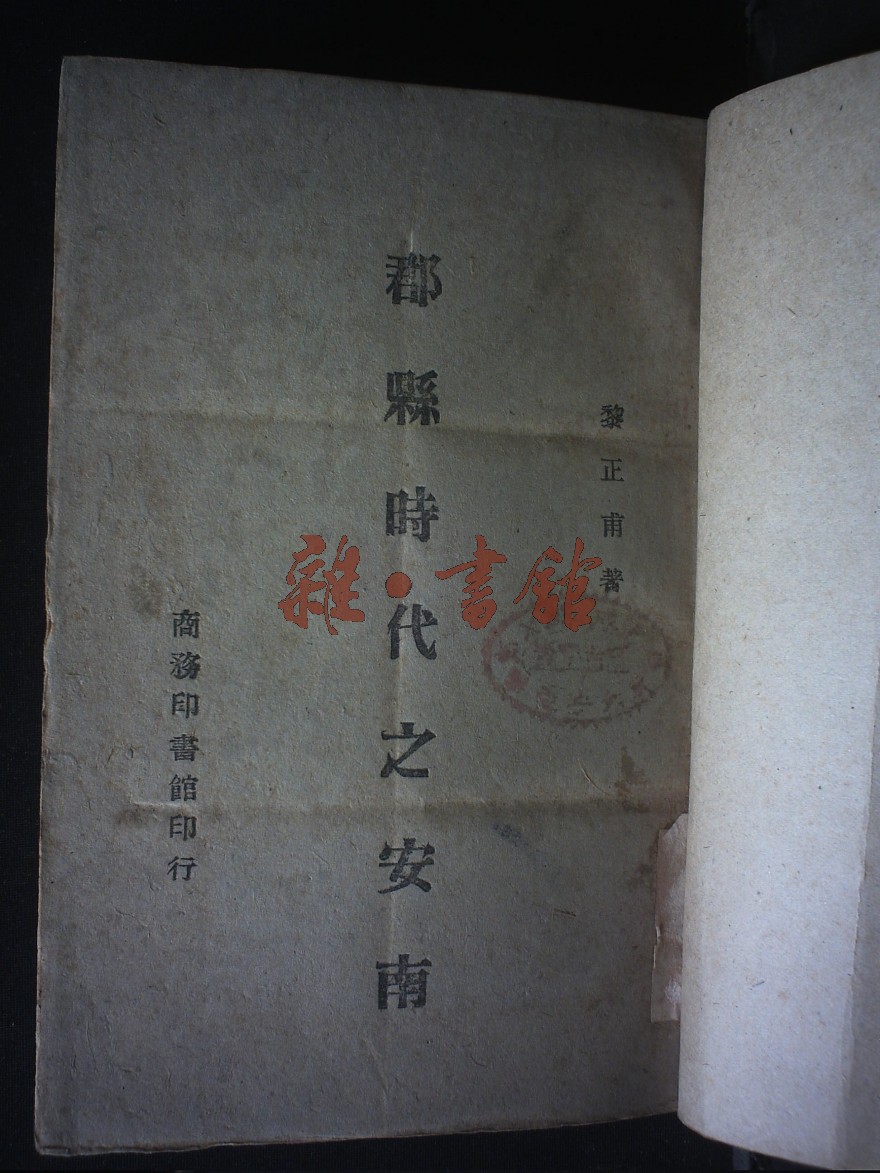 黎正甫著
郡縣時代之安南
商務印書館印行
雜·書館